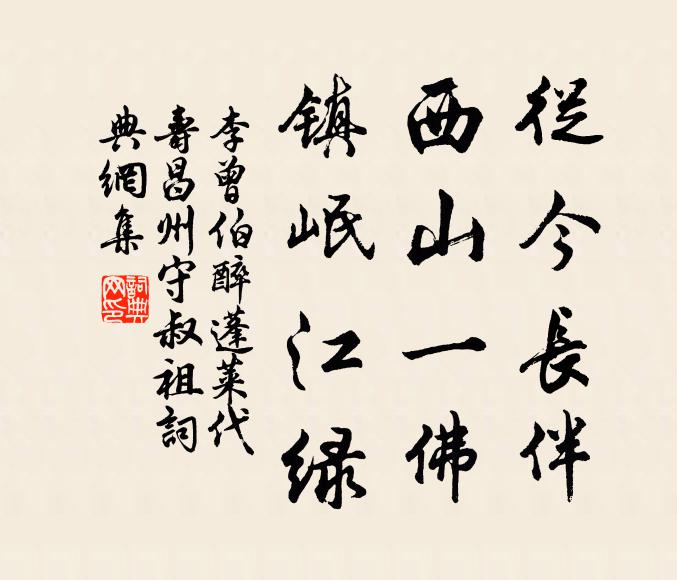 從今長伴
西山一佛
鎮岷江綠
李曾伯醉蓬萊代
壽昌州守叔祖詞
典網集
詞典网印